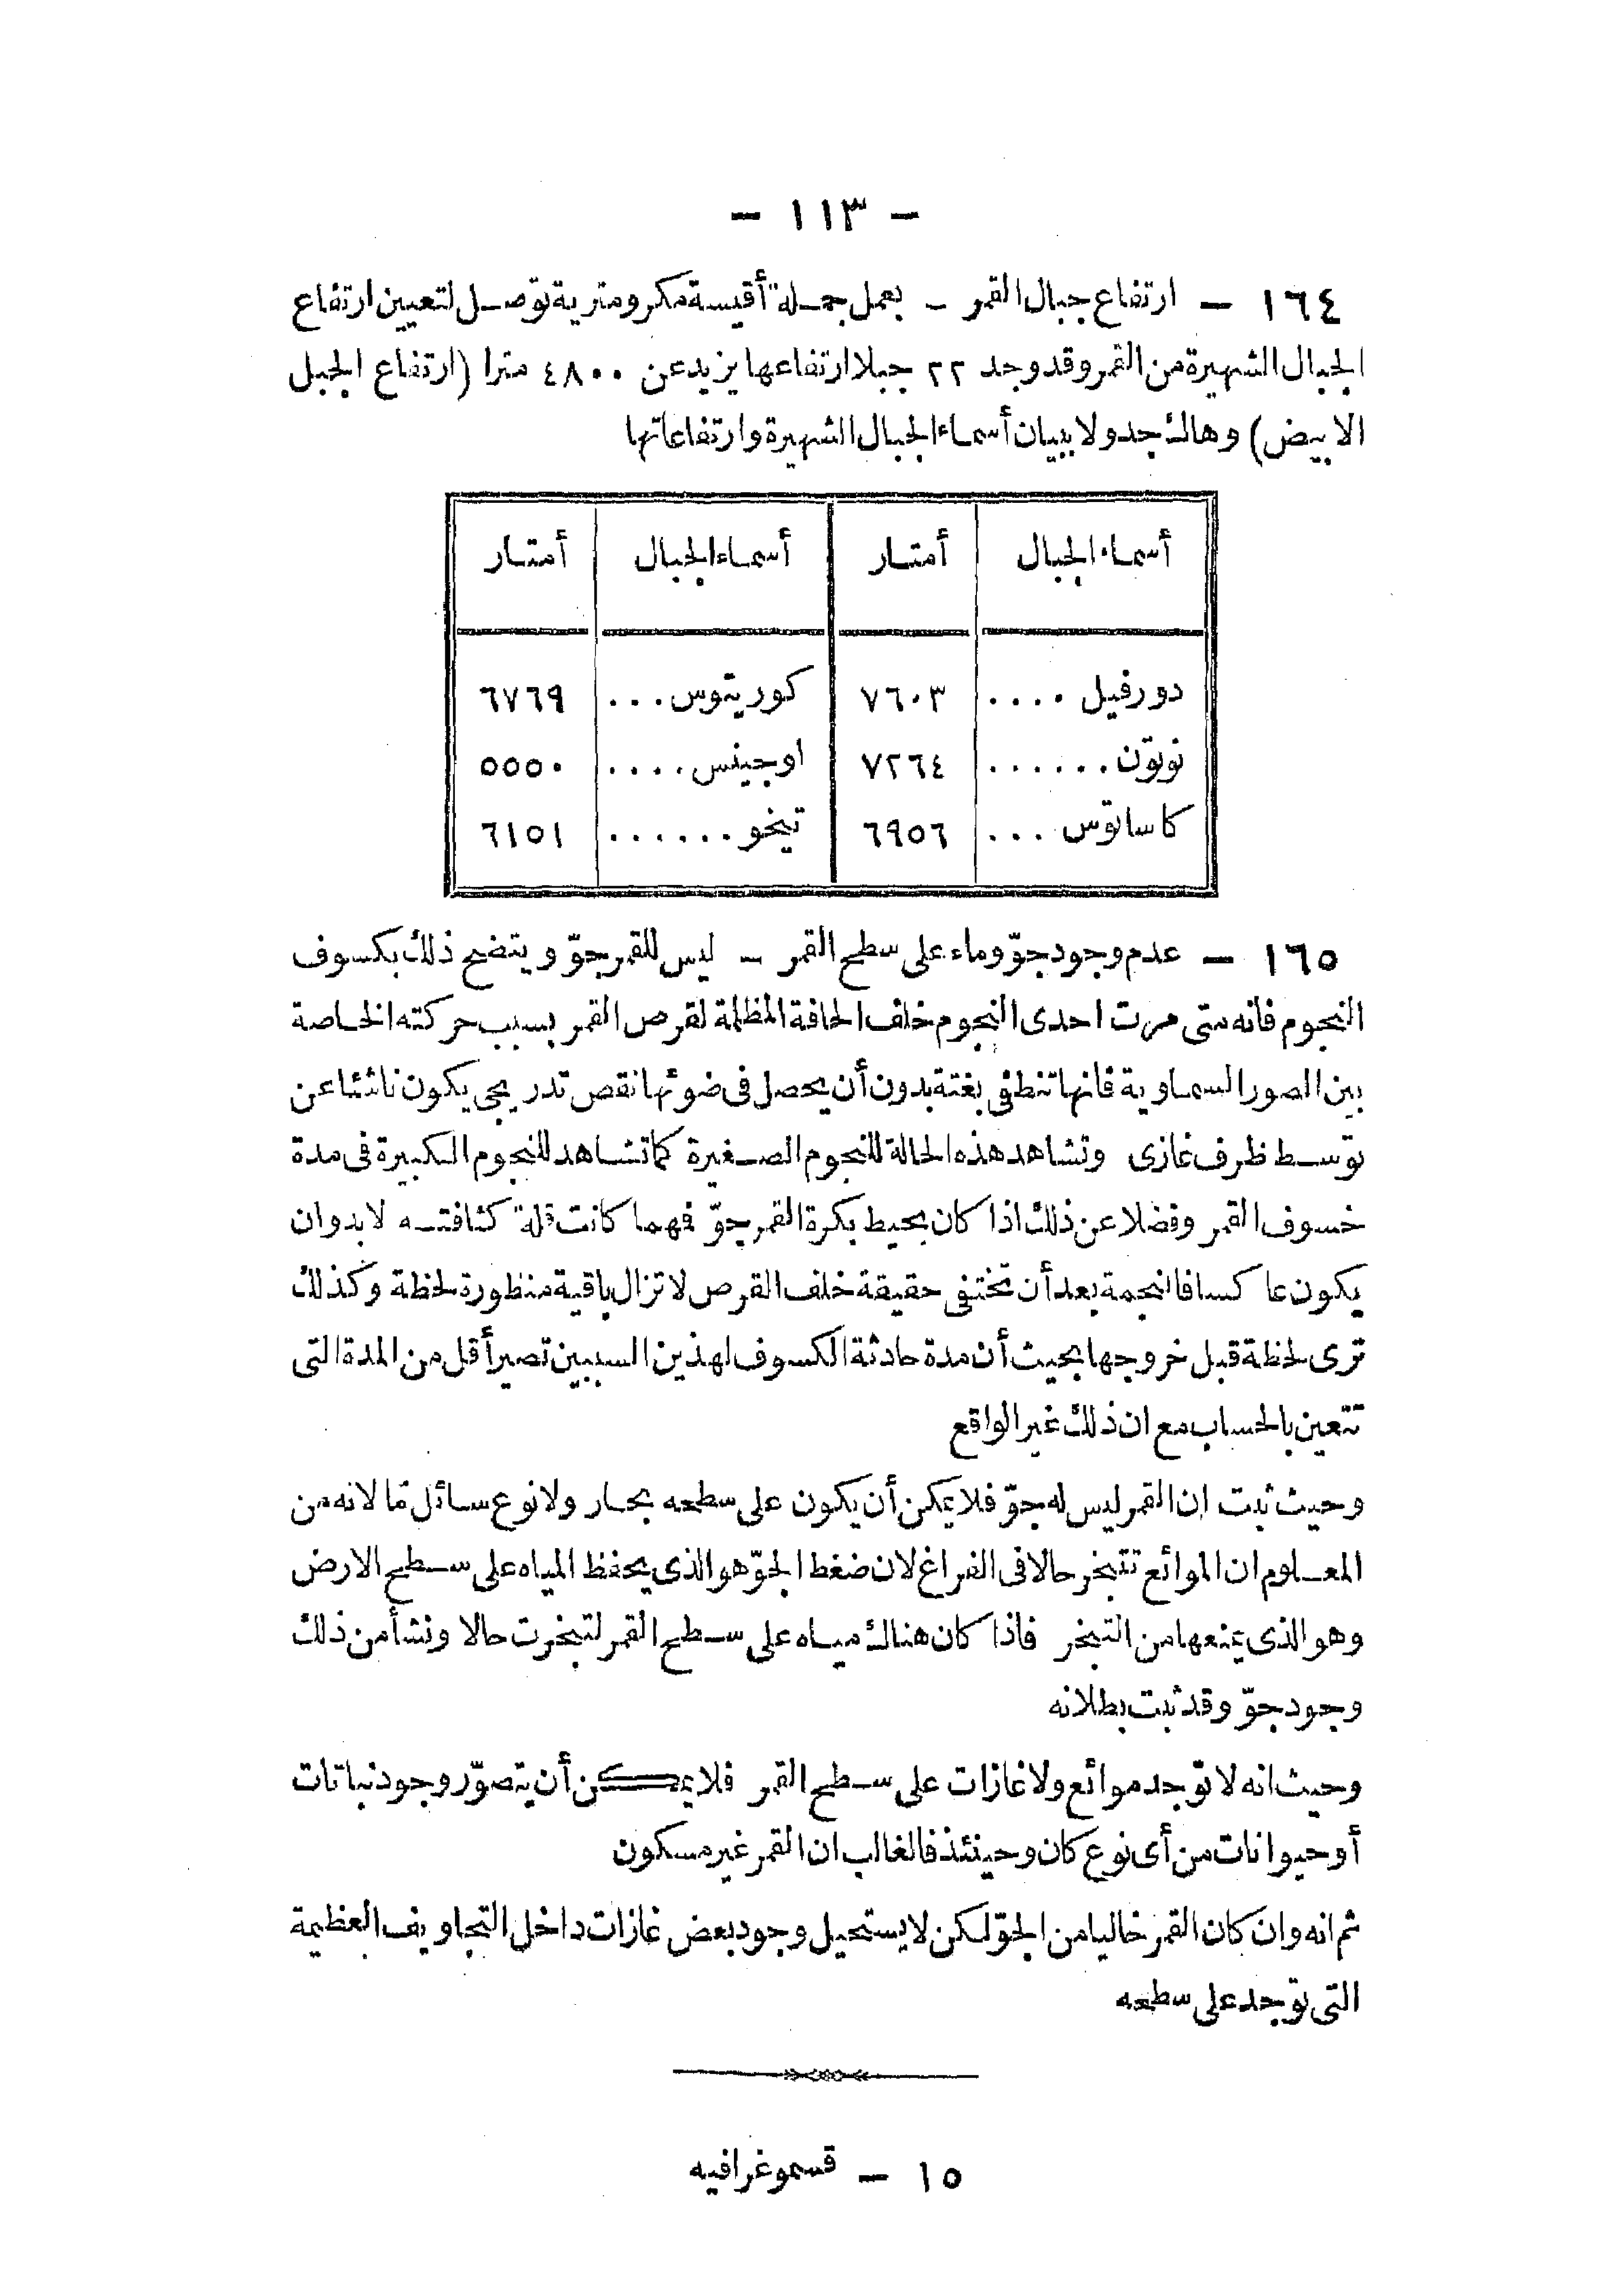 — ١١٣ —
١٦٤ — ارتفاع جبال القمر — بعمل جملة أقيسة مكرومترية توصل لتعيين ارتفاع
الجبال الشهيرة من القمر وقد وجد ٢٢ جبلا ارتفاعها يزيد عن ٤٨٠٠ مترا (ارتفاع الجبل
الابيض) وهاك جدولا ببيان أسماء الجبال الشهيرة وارتفاعاتها
أسماء الجبال أمتار أسماء الجبال أمتار
دورفيل .... ٧٦٠٣ كوريتوس ... ٦٧٦٩
نوتون ...... ٧٢٦٤ اوجينس .... ٥٥٥٠
كاساتوس ... ٦٩٥٦ تيخو ...... ٦١٥١
١٦٥ — عدم وجود جوّ وماء على سطح القمر — ليس للقمر جوّ ويتضح ذلك بكسوف
النجوم فانه متى مرت احدى النجوم خلف الحافة المظلمة لقرص القمر بسبب حركته الخاصة
بين الصور السماوية فانها تنطفئ بغتة بدون أن يحصل فى ضوئها نقص تدريجى يكون ناشئا عن
توسط ظرف غازى وتشاهد هذه الحالة للنجوم الصغيرة كما تشاهد للنجوم الكبيرة فى مدة
خسوف القمر وفضلا عن ذلك اذا كان يحيط بكرة القمر جوّ فمهما كانت قلة كثافته لابد وان
يكون عاكسا فالنجمة بعد أن تختفى حقيقة خلف القرص لا تزال باقية منظورة لحظة وكذلك
ترى لحظة قبل خروجها بحيث أن مدة حادثة الكسوف لهذين السببين تصير أقل من المدة التى
تتعين بالحساب مع ان ذلك غير الواقع
وحيث ثبت ان القمر ليس له جوّ فلا يمكن أن يكون على سطحه بحار ولا نوع سائل مّا لانه من
المعلوم ان الموائع تتبخر حالا فى الفراغ لان ضغط الجوّ هو الذى يحفظ المياه على سطح الارض
وهو الذى يمنعها من التبخر فاذا كان هناك مياه على سطح القمر لتبخرت حالا ونشأ من ذلك
وجود جوّ وقد ثبت بطلانه
وحيث انه لا توجد موائع ولا غازات على سطح القمر فلا يمكن أن يتصوّر وجود نباتات
أو حيوانات من أى نوع كان وحينئذ فالغالب ان القمر غير مسكون
ثم انه وان كان القمر خاليا من الجوّ لكن لا يستحيل وجود بعض غازات داخل التجاويف العظيمة
التى توجد على سطحه
١٥ — قسموغرافيه